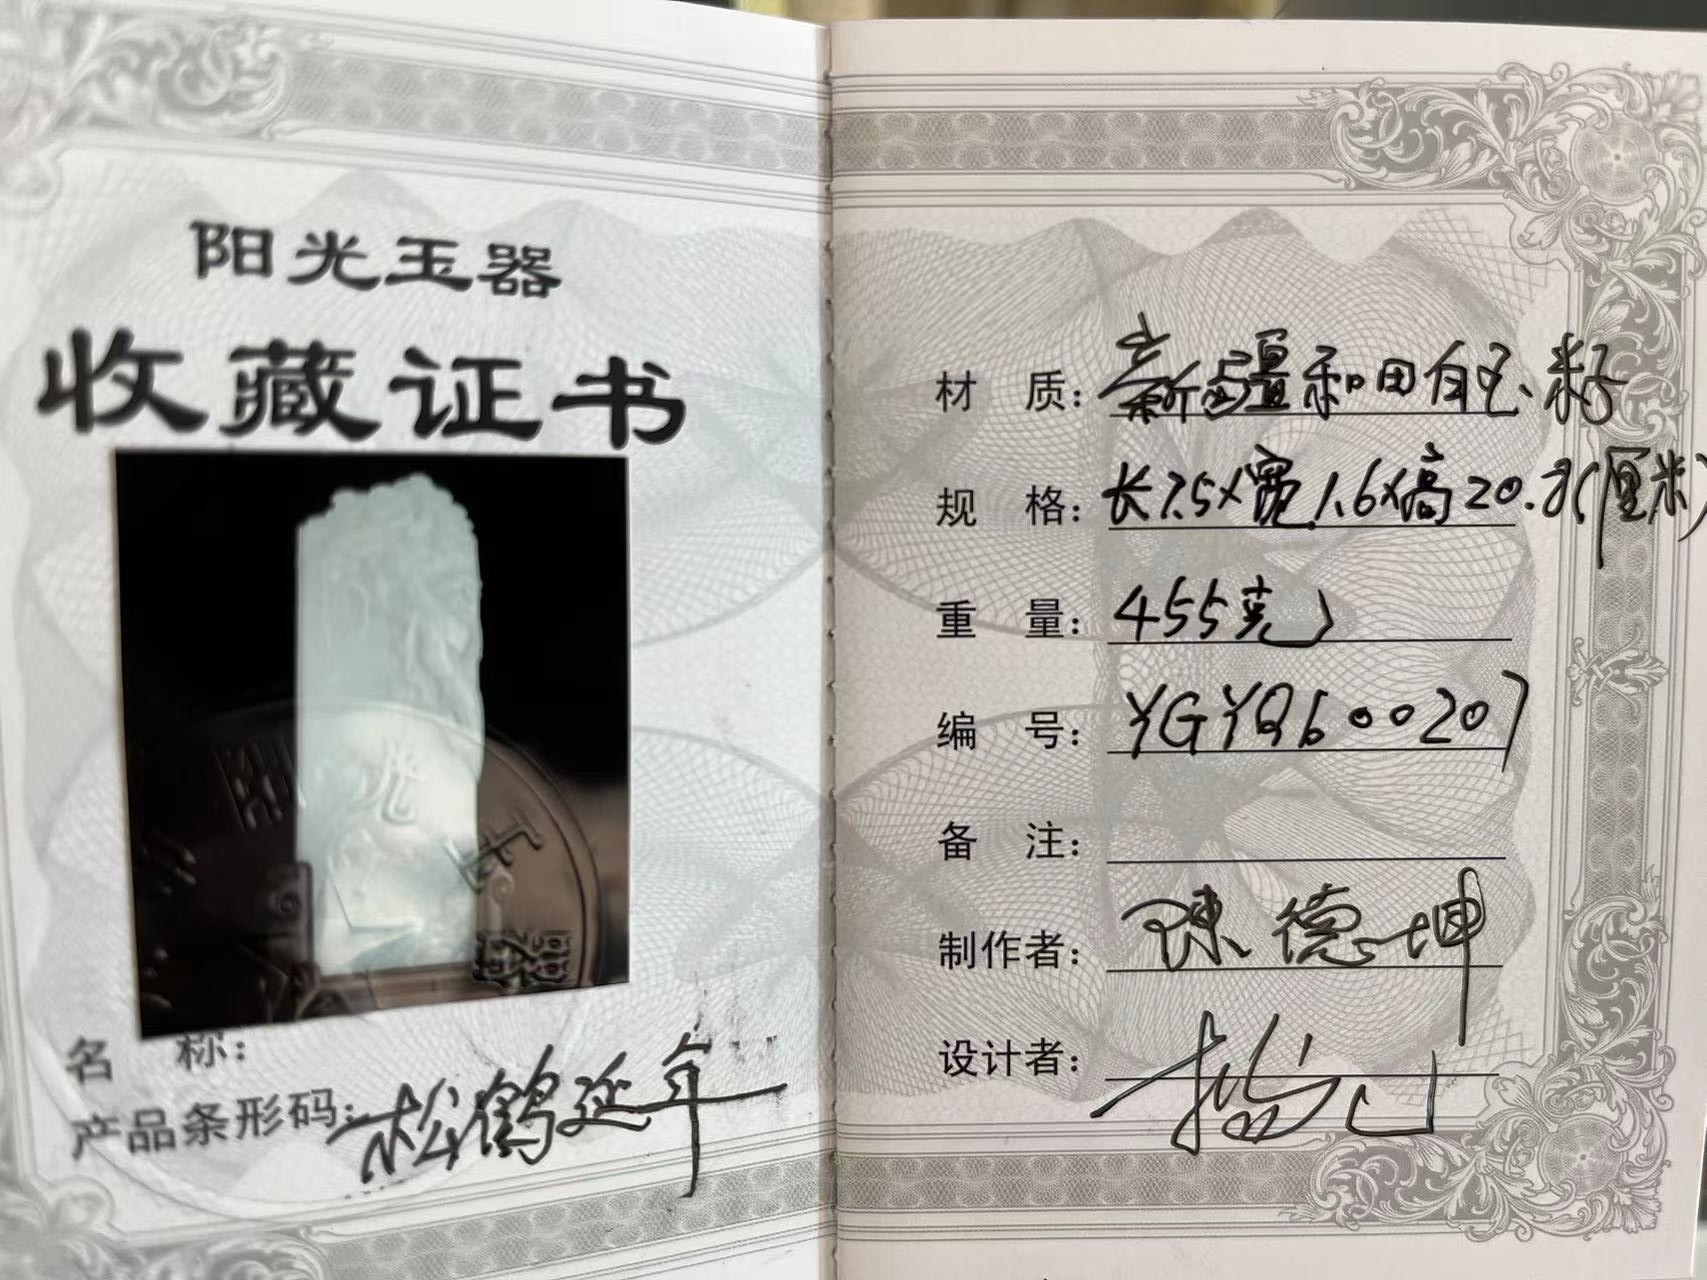 阳光玉器
收藏证书
名 称:
产品条形码: 松鹤延年
材 质: 新疆和田白玉、籽
规 格: 长7.5×宽1.6×高20.8(厘米)
重 量: 455克
编 号: YGYQ600207
备 注:
制作者: 陈德坤
设计者: